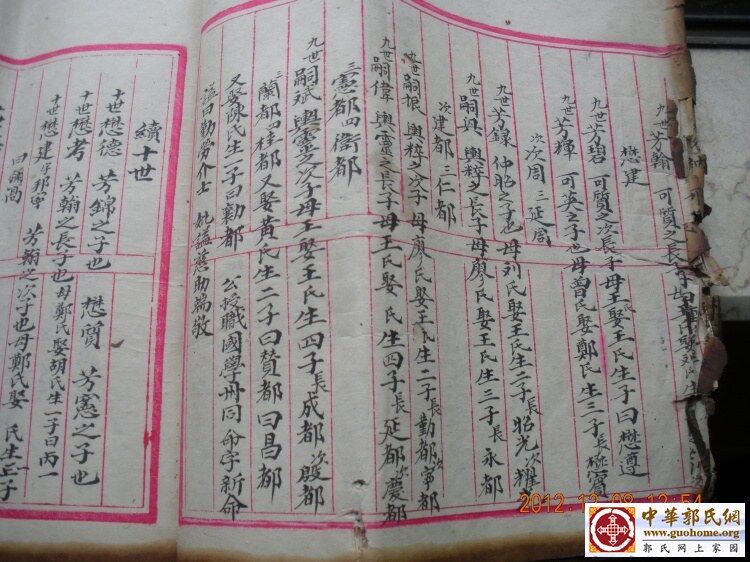 九世芳翰 可質之長子母
懋建
九世芳碧 可質之次長子母王娶王氏生子曰懋遵
九世芳輝 可英之子也母曾氏娶鄭氏生三子長懋賓
次次周 三延閣
九世芳錄 仲昭之子也母刘氏娶王氏生二子長昭光次耀
九世嗣興 輿粹之長子母廖氏娶王氏生三子長永都
次建都 三仁都
九世嗣振 輿粹之次子母廖氏娶王氏生二子長勤都次寧都
九世嗣偉 輿靈之長子母王氏娶 氏生四子長延都次慶都
三憲都四衛都
九世嗣斌 輿靈之次子母王娶王氏生四子長成都次殷都
三蘭都四桂都又娶黃氏生二子曰賛都曰昌都
又娶陳氏生一子曰勷都 公授職國學州同 命字新命
諡曰勤勞介士 妣諡慈助端敬
續十世
十世懋德 芳錦之子也 懋質 芳憲之子也
十世懋考 芳翰之長子也母鄭氏娶胡氏生一子曰丙一
十世懋建字邦寧 芳翰之次子也母鄭氏娶 氏生三子
2012.12.08 12:54
中華郭氏網
www.guohome.org
郭氏网上家园